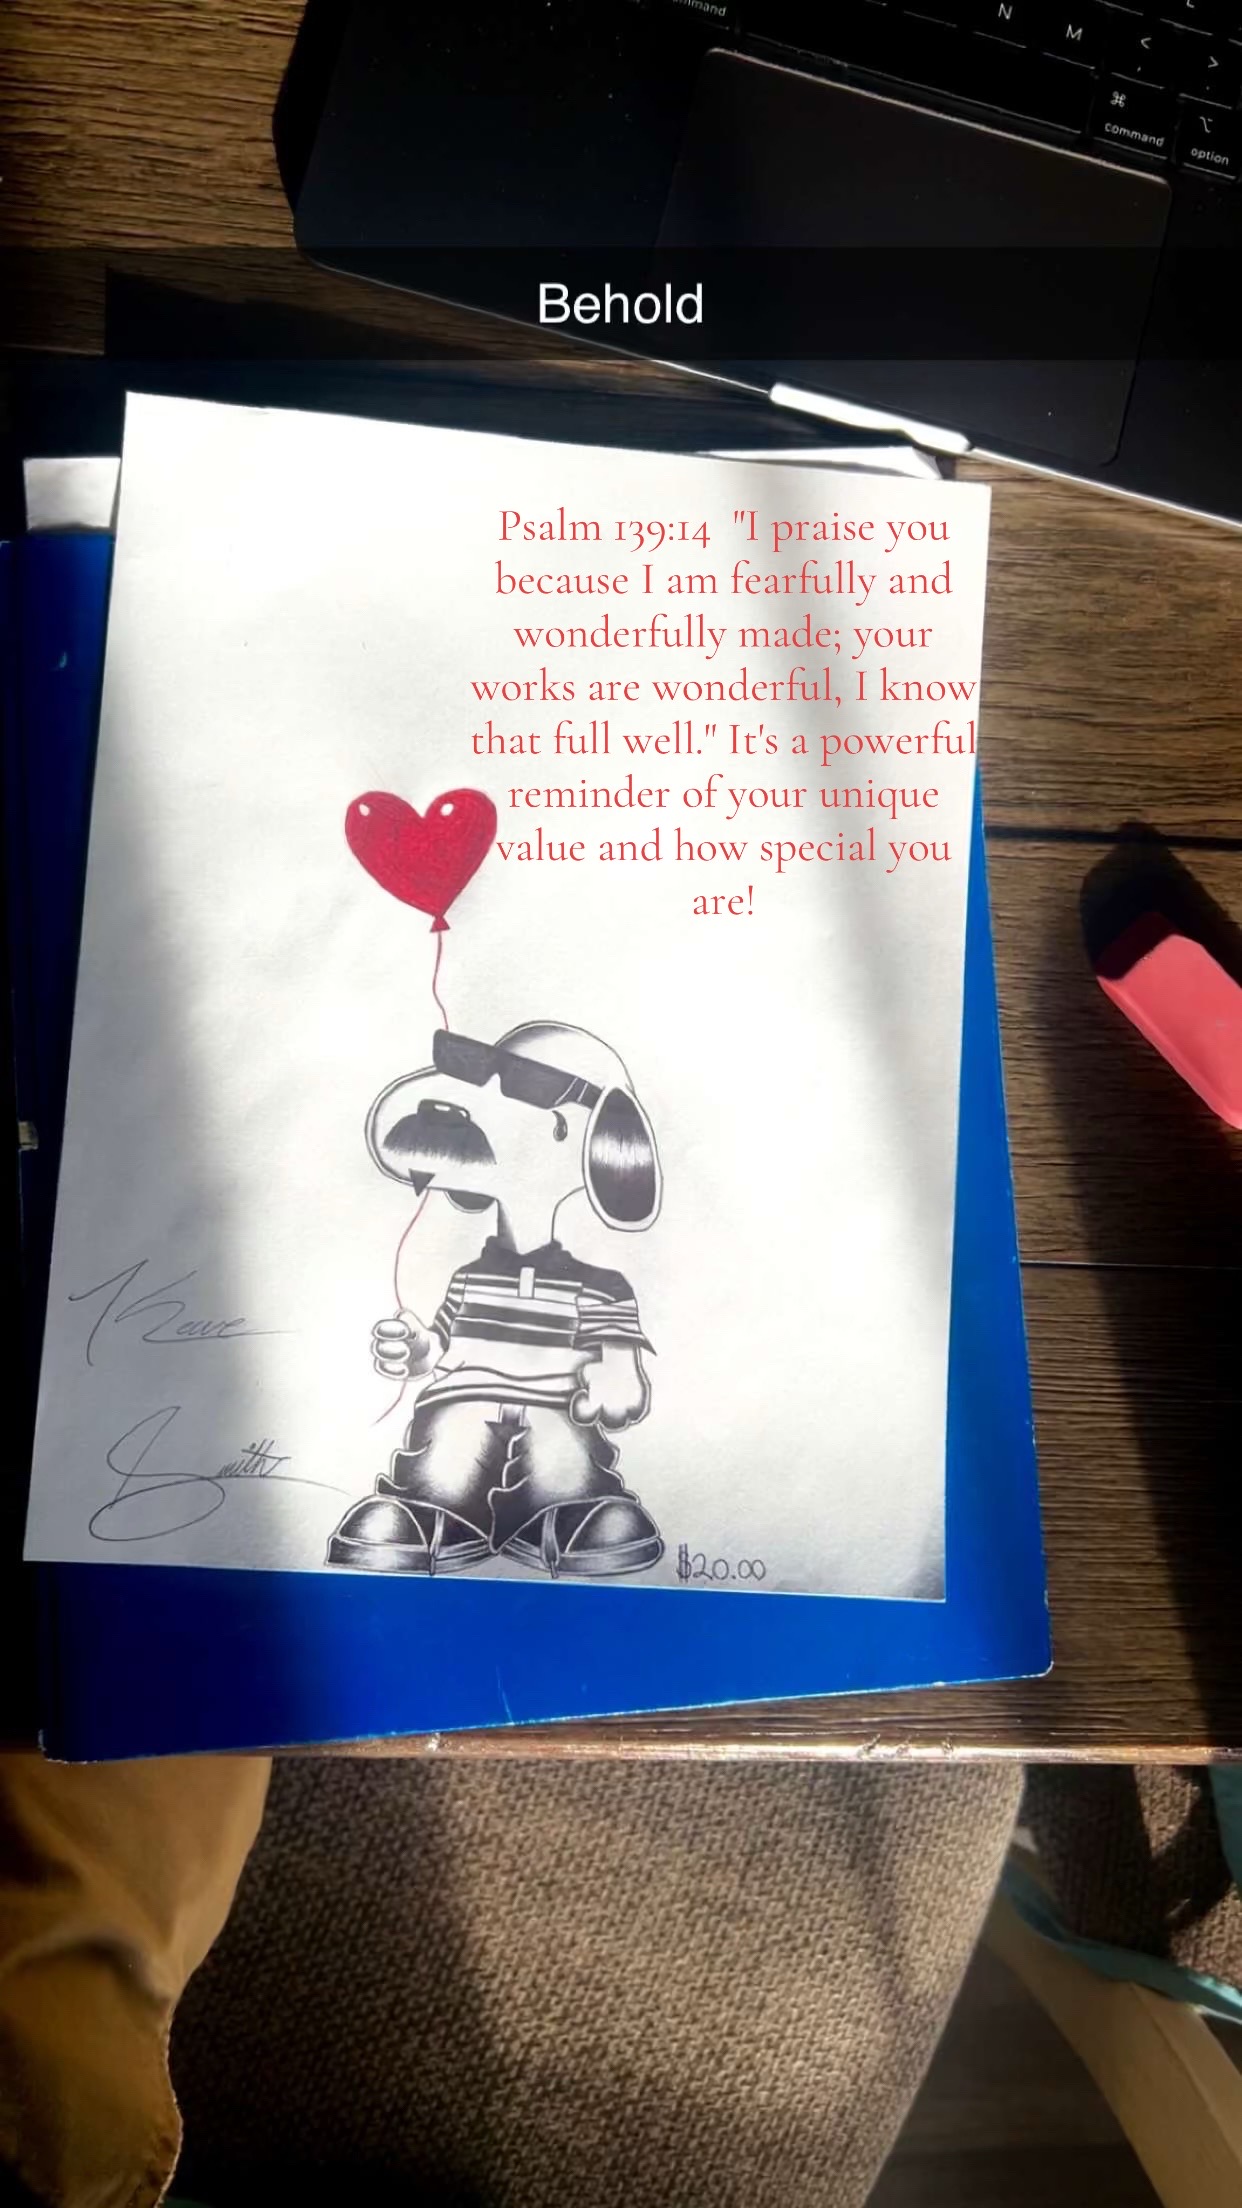 N
M
<
,
>
.
L
mmand
⌘
command
⌥
option
Behold
Psalm 139:14 "I praise you
because I am fearfully and
wonderfully made; your
works are wonderful, I know
that full well." It's a powerful
reminder of your unique
value and how special you
are!
Smith
$20.00